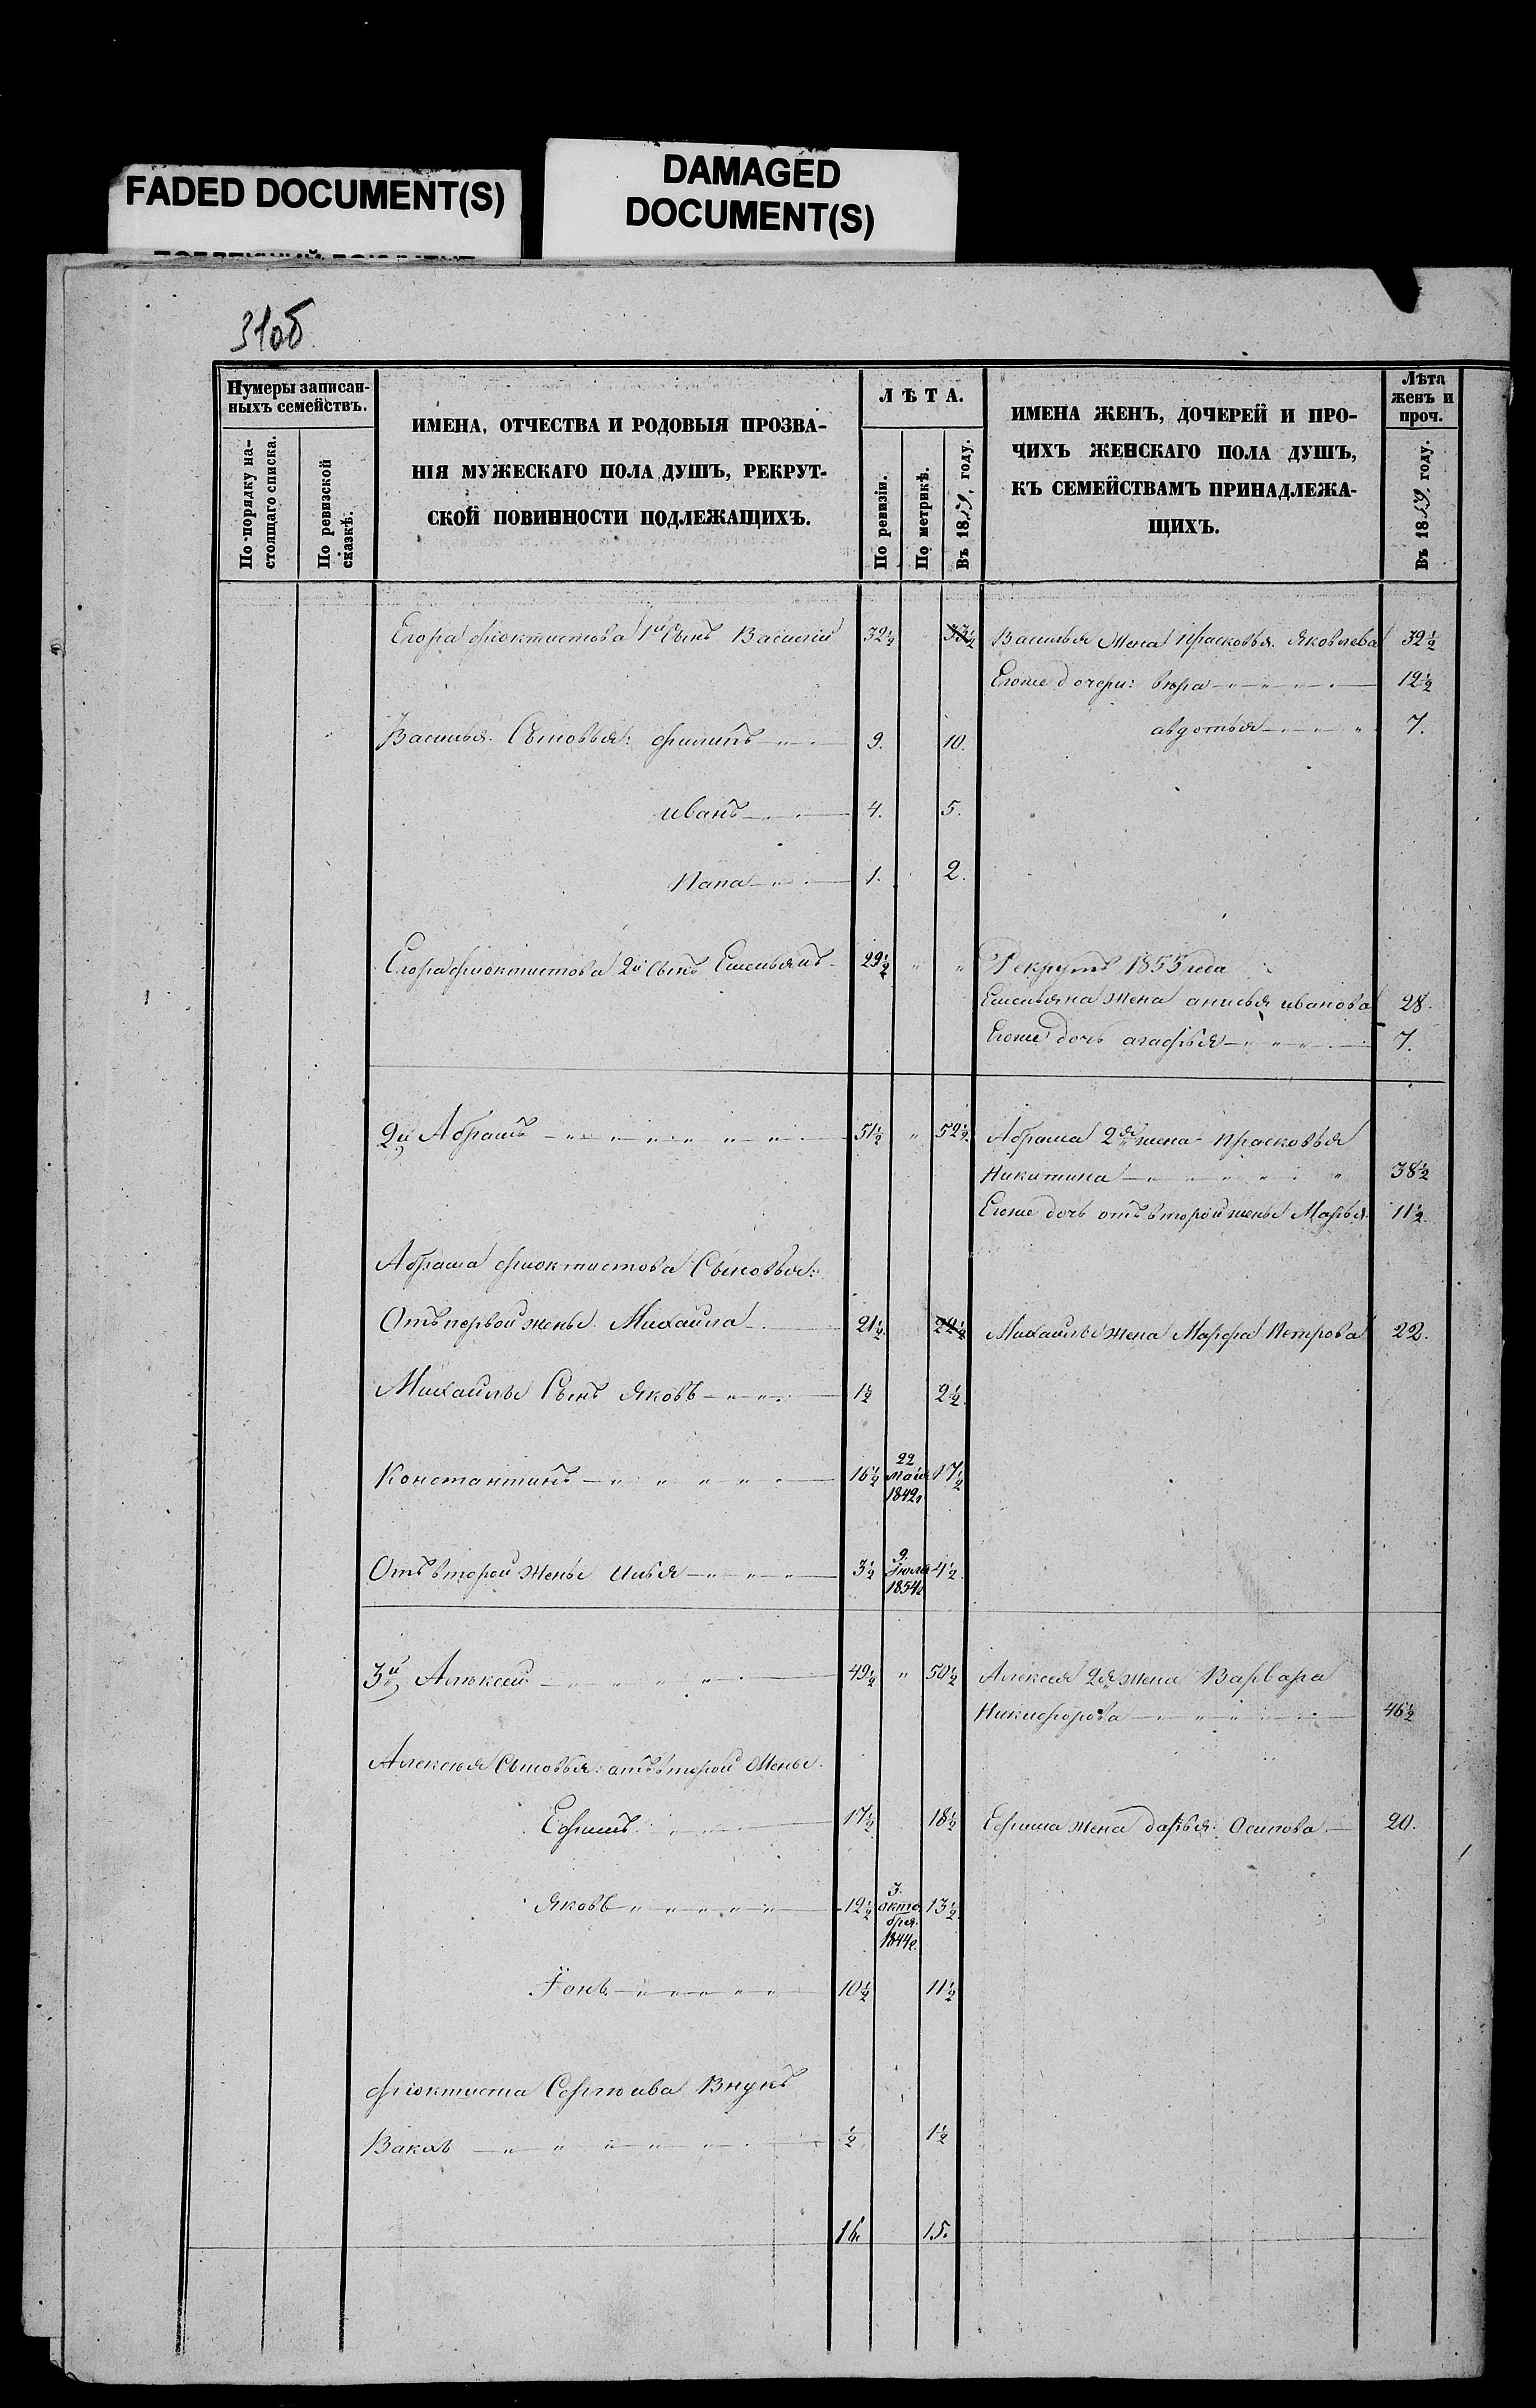 FADED DOCUMENT(S)
DAMAGED
DOCUMENT(S)
31об
Нумеры записан-
ныхъ семействъ.
По порядку на-
стоящаго списка.
По ревизской
сказкѣ.
ИМЕНА, ОТЧЕСТВА И РОДОВЫЯ ПРОЗВА-
НІЯ МУЖЕСКАГО ПОЛА ДУШЪ, РЕКРУТ-
СКОЙ ПОВИННОСТИ ПОДЛЕЖАЩИХЪ.
Л Ѣ Т А.
По ревизіи.
По метрикѣ.
Въ 1859, году.
ИМЕНА ЖЕНЪ, ДОЧЕРЕЙ И ПРО-
ЧИХЪ ЖЕНСКАГО ПОЛА ДУШЪ,
КЪ СЕМЕЙСТВАМЪ ПРИНАДЛЕЖА-
ЩИХЪ.
Лѣта
женъ и
проч.
Въ 1859, году.
Егора Фиоктистова 1й Сынъ Василий 32½ 33½ Василья Жена Прасковья Яковлева 32½
Егоже дочери: 12½
авдотья 7.
Василья Сыновья: Филипъ 9. 10.
иванъ 4. 5.
1. 2.
Егора Фиоктистова 2й Сынъ Емельянъ 29½ " " Рекрутъ 1855 года
Емельяна жена анисья иванова 28.
Егоже дочь агафья 7.
2й Абрамъ 51½ " 52½ Абрама 2я жена Прасковья
Никитина 38½
Егоже дочь отъ второй жены Марья 11½
Абрама Фиоктистова Сыновья:
Отъ первой жены Михаила 21½ 22½ Михаилы жена Марфа Петрова 22.
Михаилы Сынъ Яковъ 1½ 2½
Константинъ 16½ 22 Маия 1842г 17½
Отъ второй жены Илья 3½ 9 Июля 1854г 4½
3й Алексей 49½ " 50½ Алексея 2я жена Варвара
Никифорова 46½
Алексея Сыновья: отъ второй жены
Ефимъ 17½ 18½ Ефима жена дарья Осипова 20.
Яковъ 12½ 3. октобря 1844г. 13½
Iонъ 10½ 11½
Фиоктиста Внукъ
Вакхъ ½ 1½
16. 15.